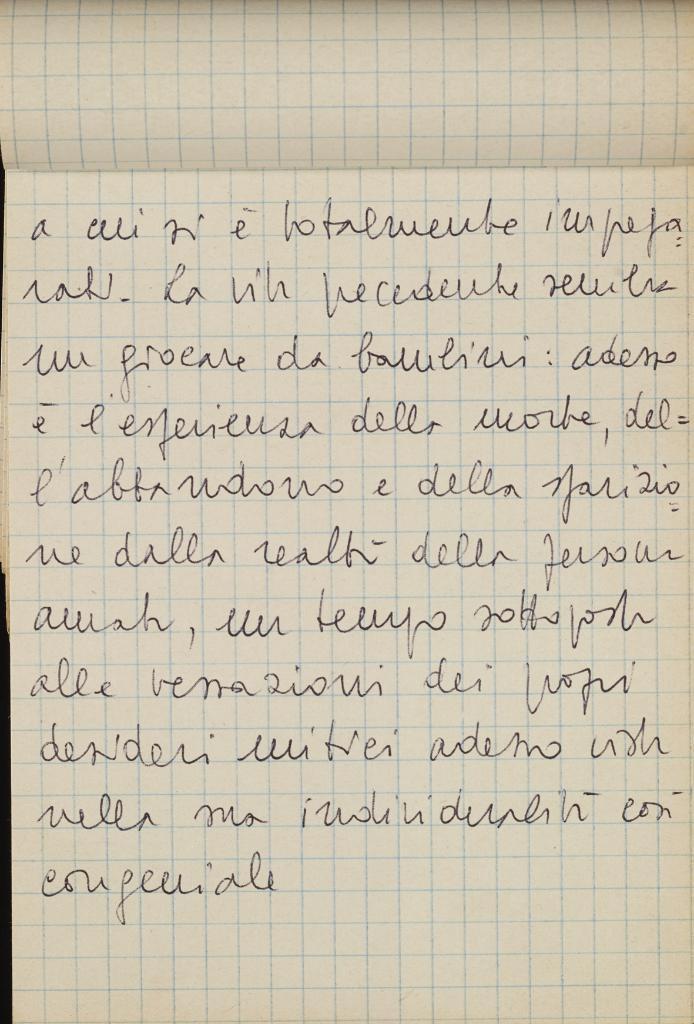 a cui si è totalmente impega=
nati. La vita pecedente sembra
un giocare da bambini: adesso
è l'esperienza della morte, del=
l'abbandono e della sparizio=
ne dalla realtà della persona
amata, un tempo sottoposta
alle vessazioni dei propri
desideri mitici adesso vista
nella sua individualità così
congeniale